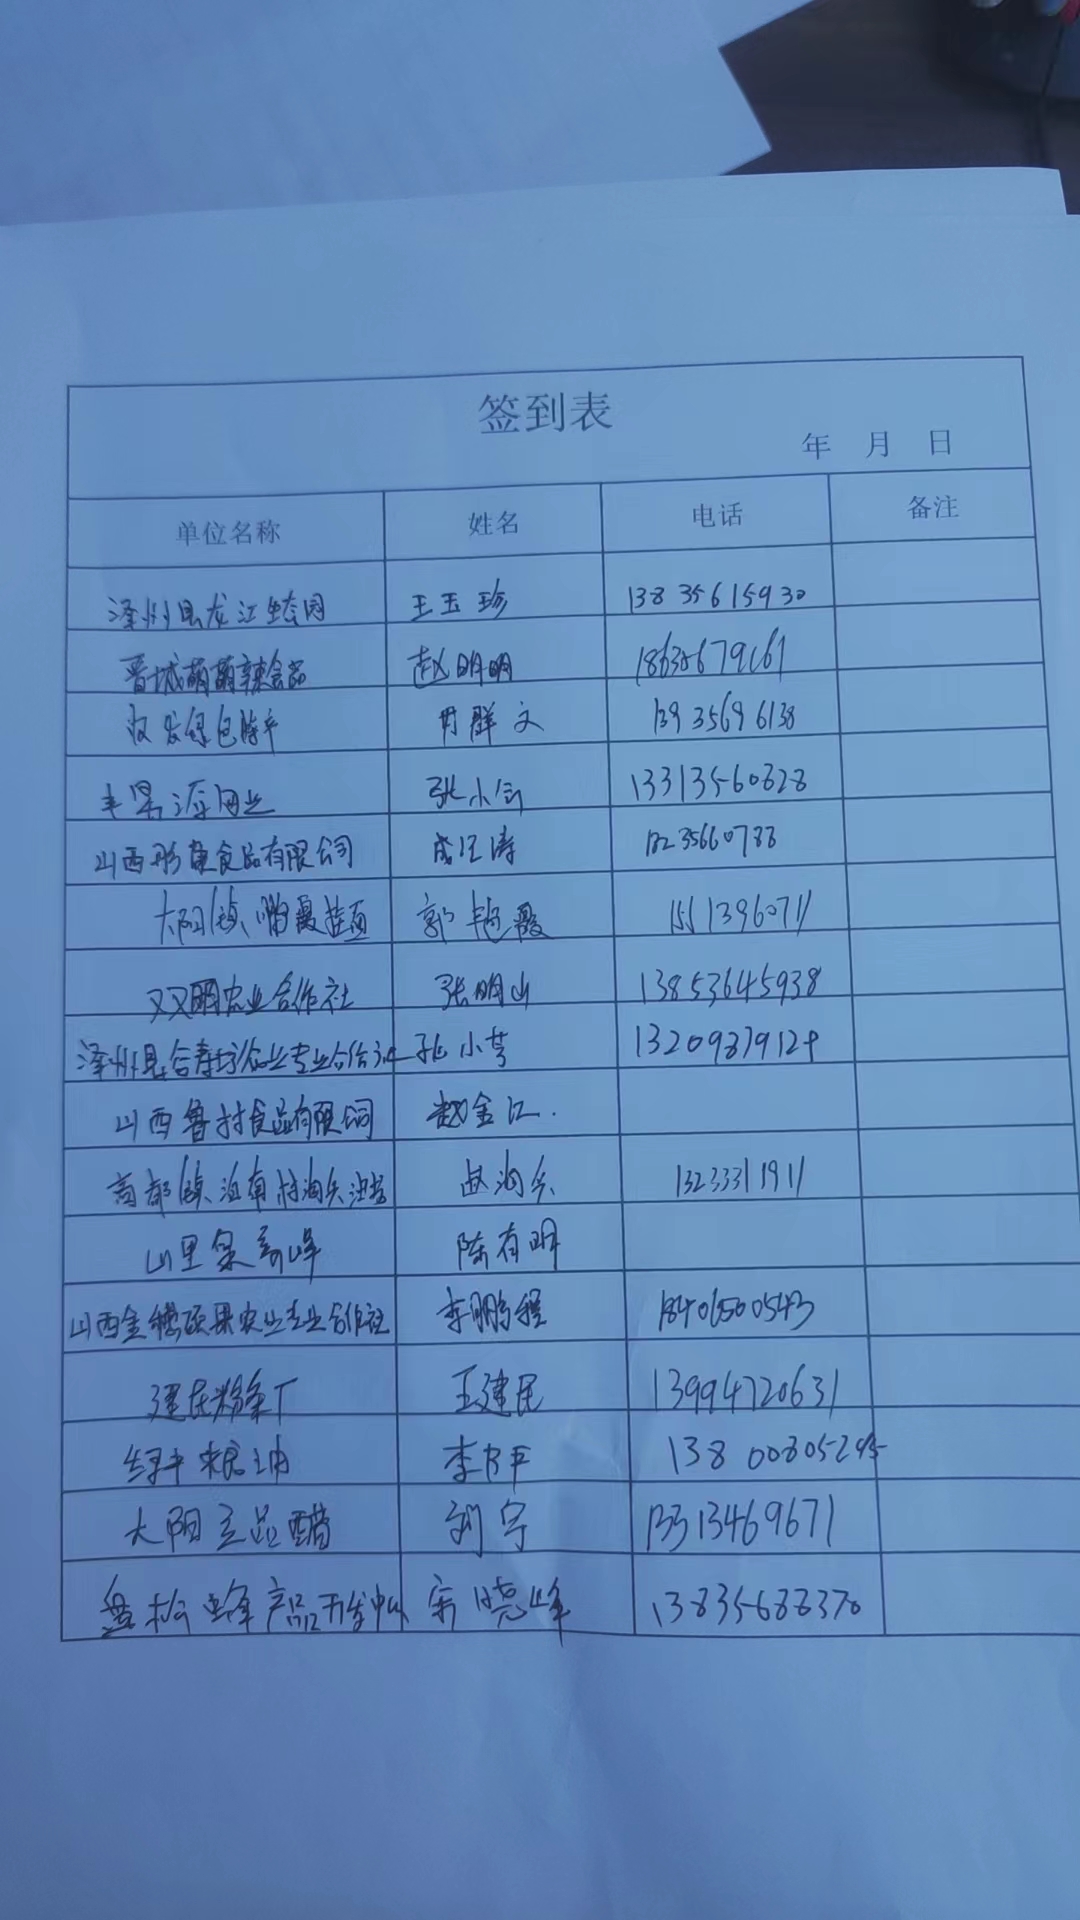 签到表
年 月 日
单位名称 姓名 电话 备注
泽州县龙江生态园 王玉珍 13835615930
晋城萌萌辣食品 赵明明 18635679161
绿色 群文 13935696138
丰 源 业 张小 13313560828
山西彤 食品有限公司 成 涛 18235660788
大阳镇 霞挂面 郭艳霞 15513960711
双双明农业合作社 张明山 13853645938
泽州县合 农业专业合作社 孔小 13209879129
山西鲁村食品有限公司 赵金江.
高都镇 南村 头油坊 赵 13233311911
山里 陈有明
山西金穗硕果农业专业合作社 李鹏程 18406500543
建民粉条厂 王建民 13994720631
绿 粮油 李 平 13800805245
大阳 品醋 刘宁 13313469671
盘松蜂产品开发中心 宋晓峰 13835688370